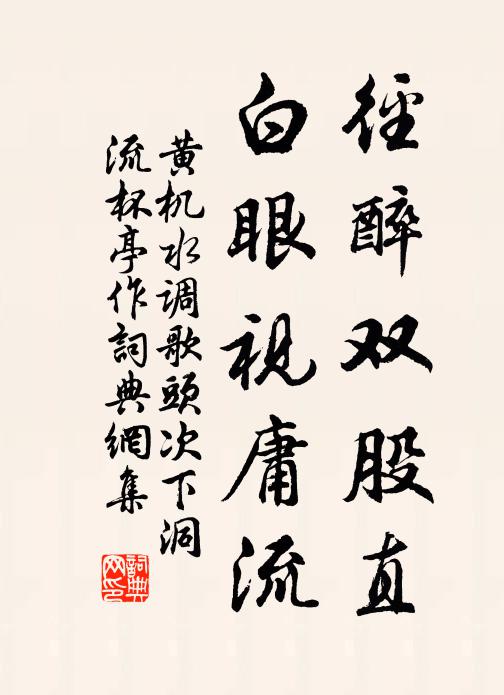 徑醉双股直
白眼視庸流
黄机水調歌頭次下洞
流杯亭作詞典網集
詞典
网印